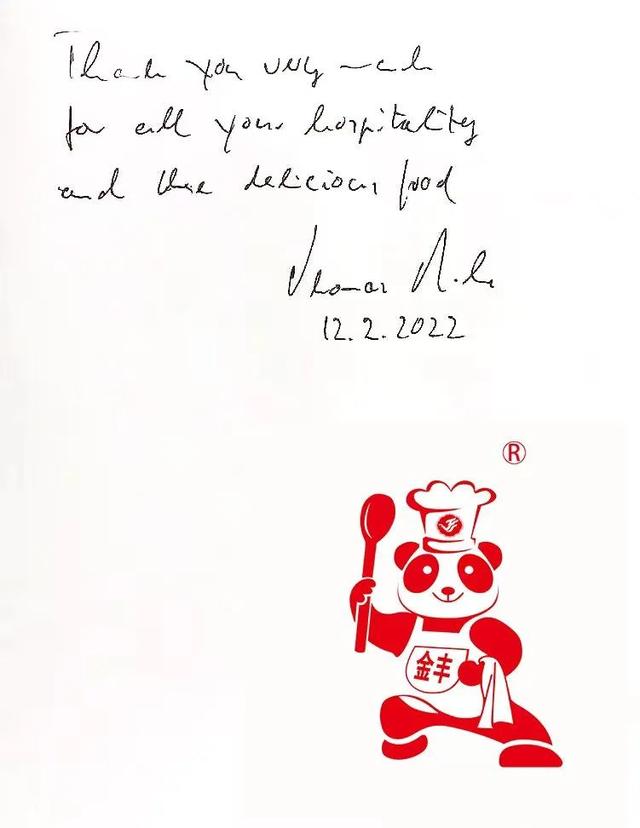 Thank you very much
for all your hospitality
and the delicious food
Thomas
12.2.2022
®
金丰